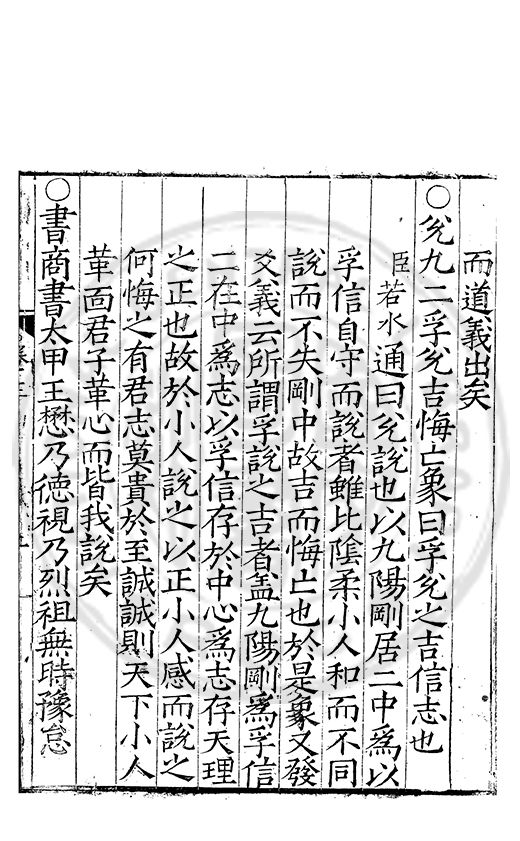 而道義出矣
○兊九二孚兊吉悔亡象曰孚兊之吉信志也
臣若水通曰兊說也以九陽剛居二中爲以
孚信自守而說者雖比陰柔小人和而不同
說而不失剛中故吉而悔亡也於是象又發
爻義云所謂孚說之吉者盖九陽剛爲孚信
二在中爲志以孚信存於中心爲志存天理
之正也故於小人說之以正小人感而說之
何悔之有君志莫貴於至誠誠則天下小人
革面君子革心而皆我說矣
○書商書太甲王懋乃德視乃烈祖無時豫怠